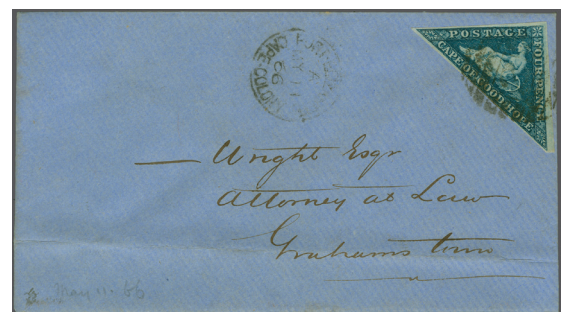 POSTAGE
FOUR PENCE
CAPE OF GOOD HOPE
CAPE COLONY
MY 11
66
— Wright Esqr
Attorney at Law
Grahamstown
May 11. 66